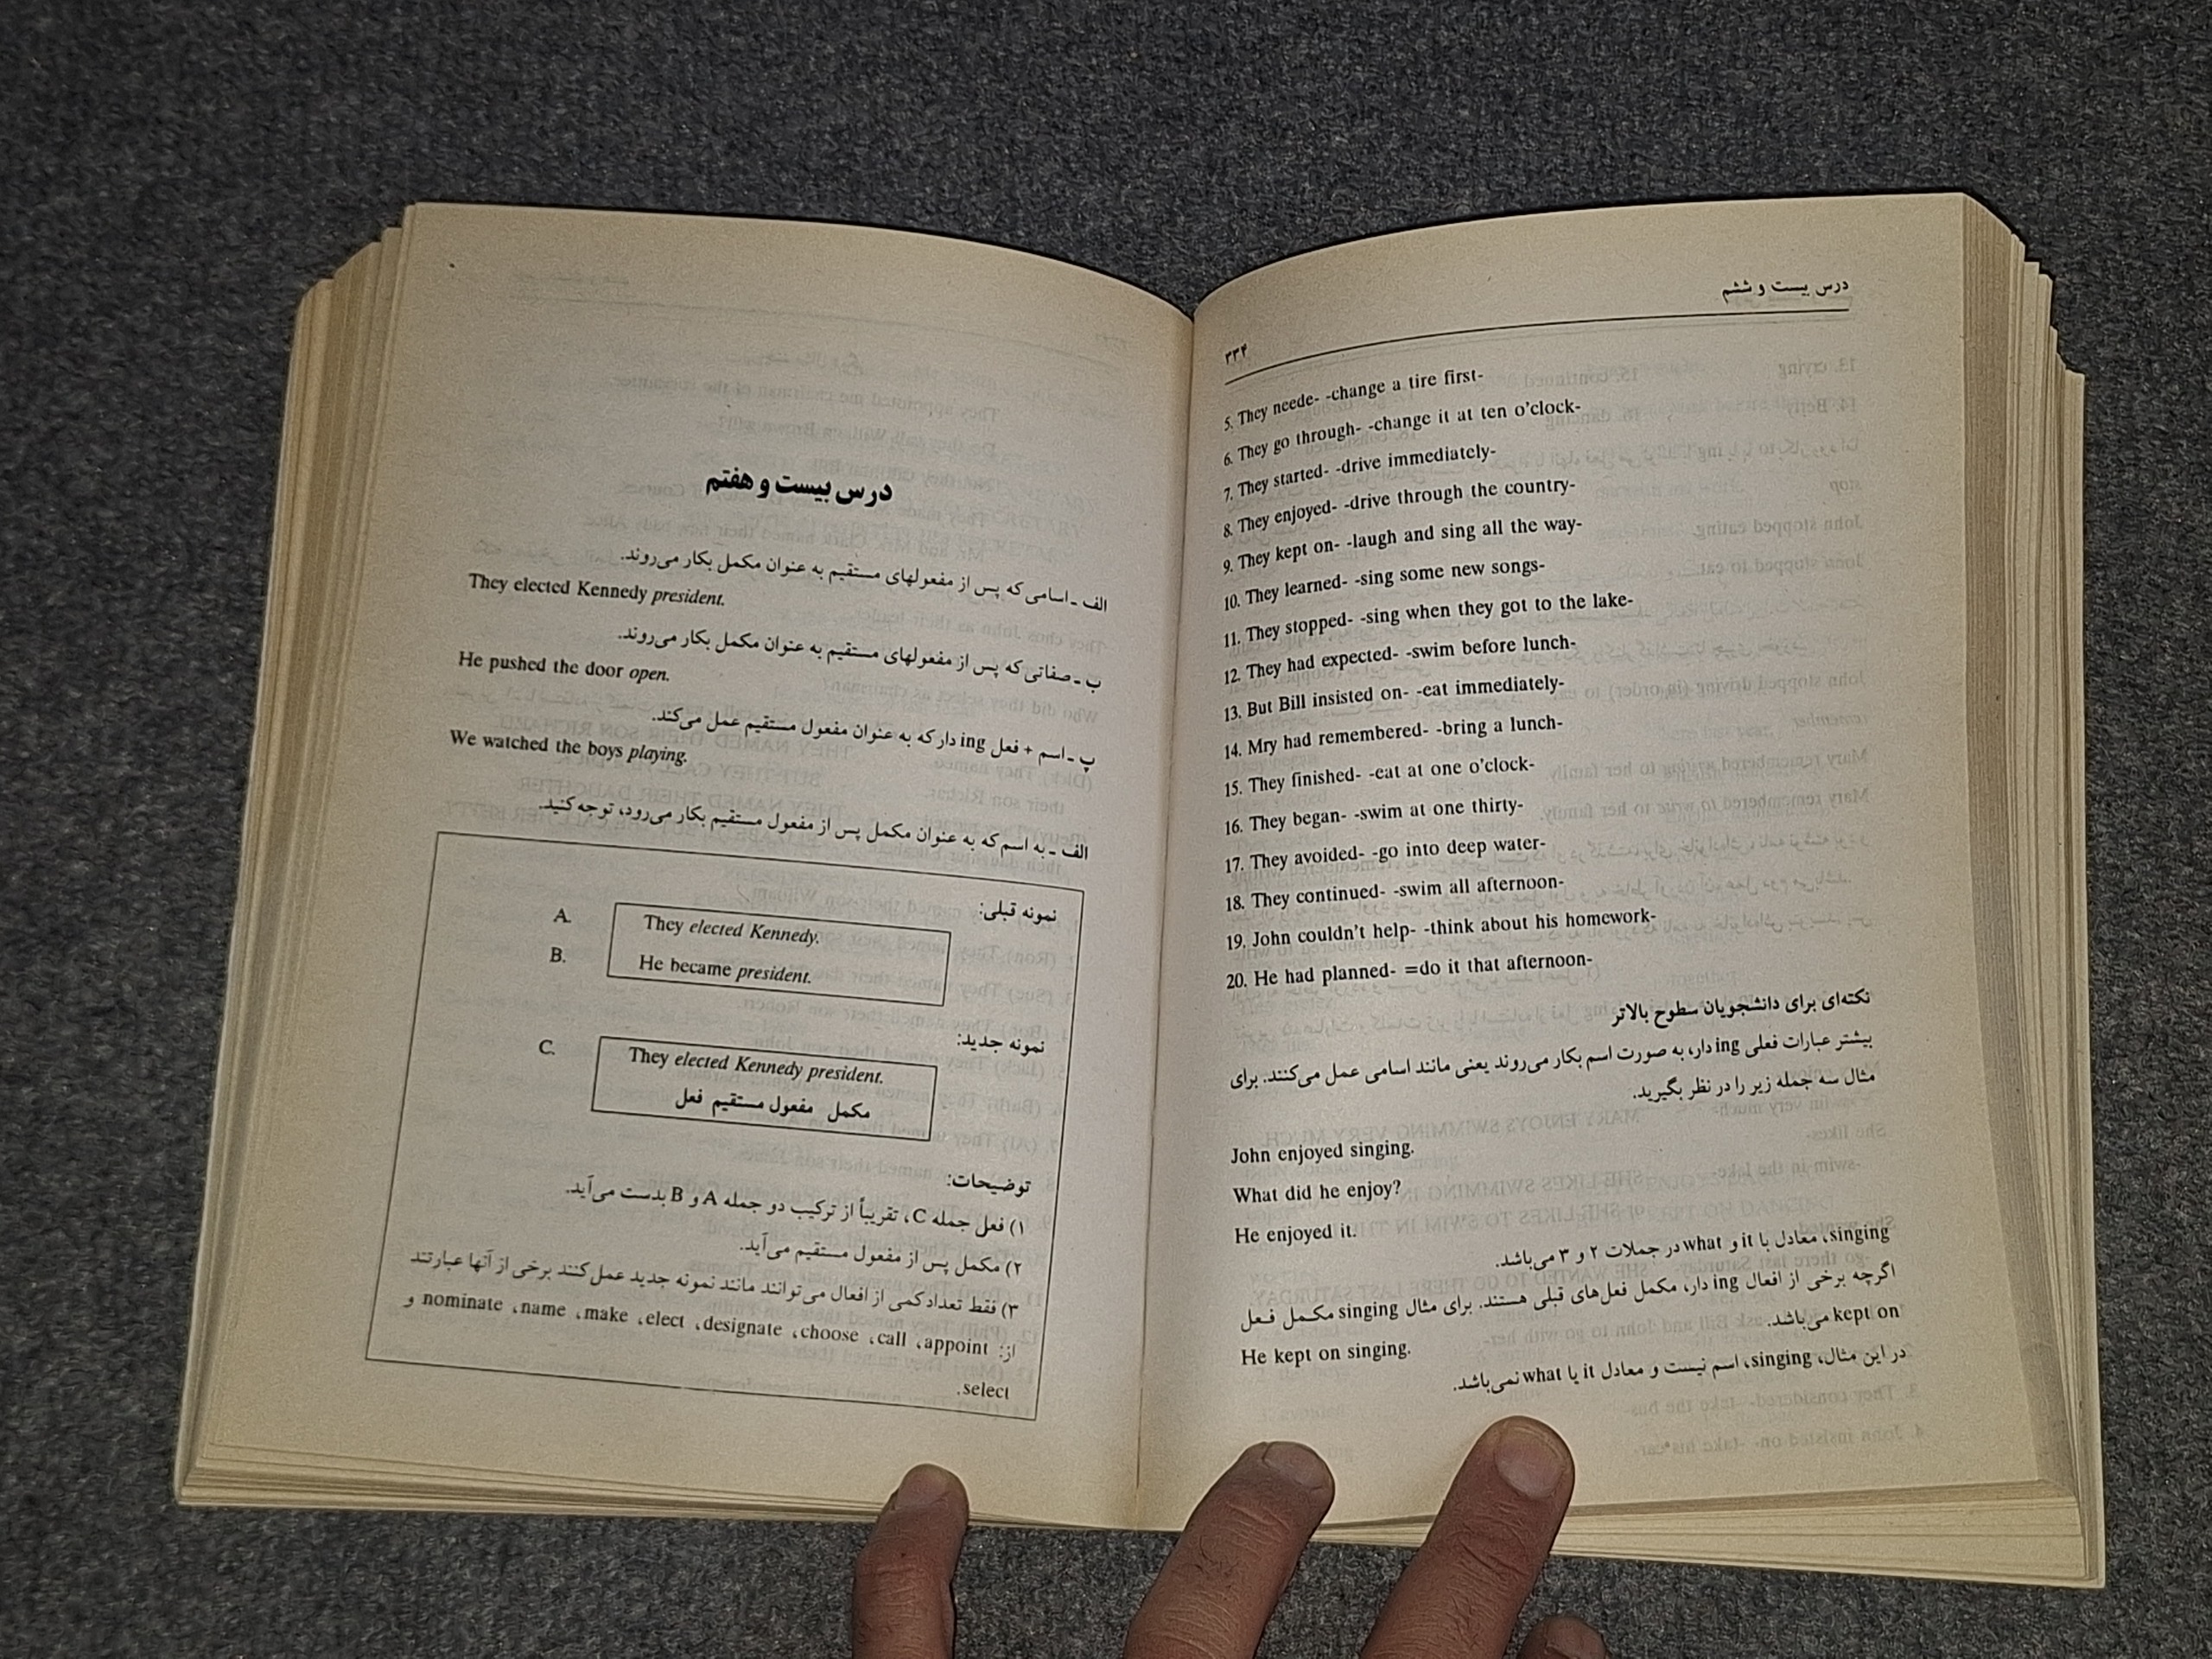 درس بیست و ششم
۳۳۴
5. They neede- -change a tire first-
6. They go through- -change it at ten o'clock-
7. They started- -drive immediately-
8. They enjoyed- -drive through the country-
9. They kept on- -laugh and sing all the way-
10. They learned- -sing some new songs-
11. They stopped- -sing when they got to the lake-
12. They had expected- -swim before lunch-
13. But Bill insisted on- -eat immediately-
14. Mry had remembered- -bring a lunch-
15. They finished- -eat at one o'clock-
16. They began- -swim at one thirty-
17. They avoided- -go into deep water-
18. They continued- -swim all afternoon-
19. John couldn't help- -think about his homework-
20. He had planned- =do it that afternoon-
نکته‌ای برای دانشجویان سطوح بالاتر
بیشتر عبارات فعلی ing دار، به صورت اسم بکار می‌روند یعنی مانند اسامی عمل می‌کنند. برای
مثال سه جمله زیر را در نظر بگیرید.
John enjoyed singing.
What did he enjoy?
He enjoyed it.
singing، معادل با it و what در جملات ۲ و ۳ می‌باشد.
اگرچه برخی از افعال ing دار، مکمل فعل‌های قبلی هستند. برای مثال singing مکمل فعل
kept on می‌باشد.
He kept on singing.
در این مثال، singing، اسم نیست و معادل it یا what نمی‌باشد.
درس بیست و هفتم
الف ـ اسامی که پس از مفعولهای مستقیم به عنوان مکمل بکار می‌روند.
They elected Kennedy president.
ب ـ صفاتی که پس از مفعولهای مستقیم به عنوان مکمل بکار می‌روند.
He pushed the door open.
پ ـ اسم + فعل ing دار که به عنوان مفعول مستقیم عمل می‌کند.
We watched the boys playing.
الف ـ به اسم که به عنوان مکمل پس از مفعول مستقیم بکار می‌رود، توجه کنید.
نمونه قبلی:
A. They elected Kennedy.
B. He became president.
نمونه جدید:
C. They elected Kennedy president.
مکمل مفعول مستقیم فعل
توضیحات:
۱) فعل جمله C، تقریباً از ترکیب دو جمله A و B بدست می‌آید.
۲) مکمل پس از مفعول مستقیم می‌آید.
۳) فقط تعداد کمی از افعال می‌توانند مانند نمونه جدید عمل کنند برخی از آنها عبارتند
از: appoint، call، choose، designate، elect، make، name، nominate و
select.